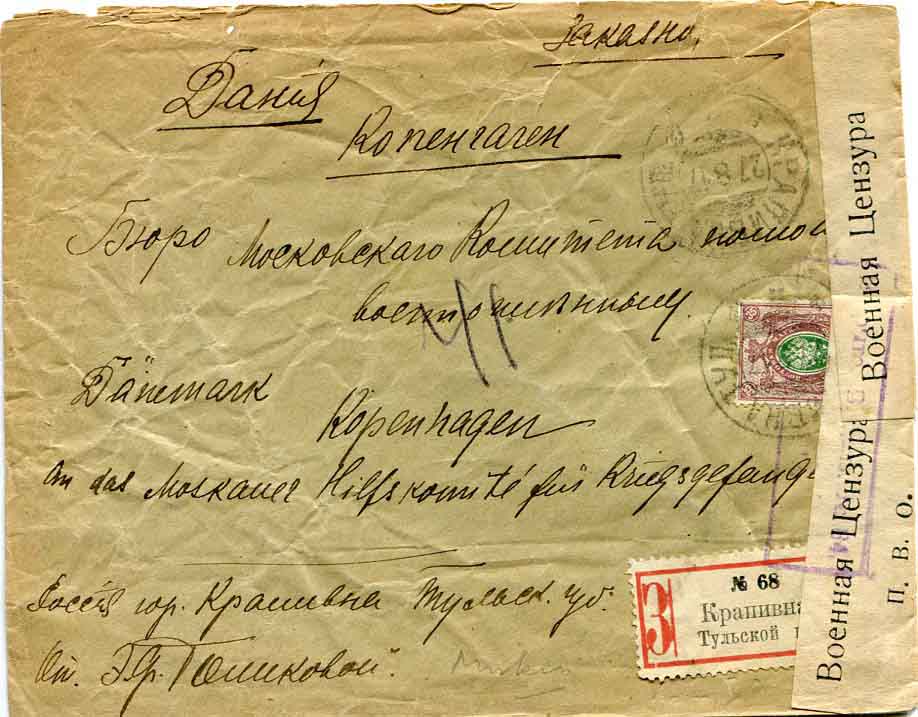 Заказно.
Данія
Копенгаген
Бюро Московскаго Комитета помощ
военноплѣнному
Dänemark
Kopenhagen
An das Moskauer Hilfskomité für Kriegsgefang
Россія гор. Крапивна Тульск. губ.
От. Гр.
№ 68
З
Крапивна
Тульской
Военная Цензура
Военная Цензура
П. В. О.